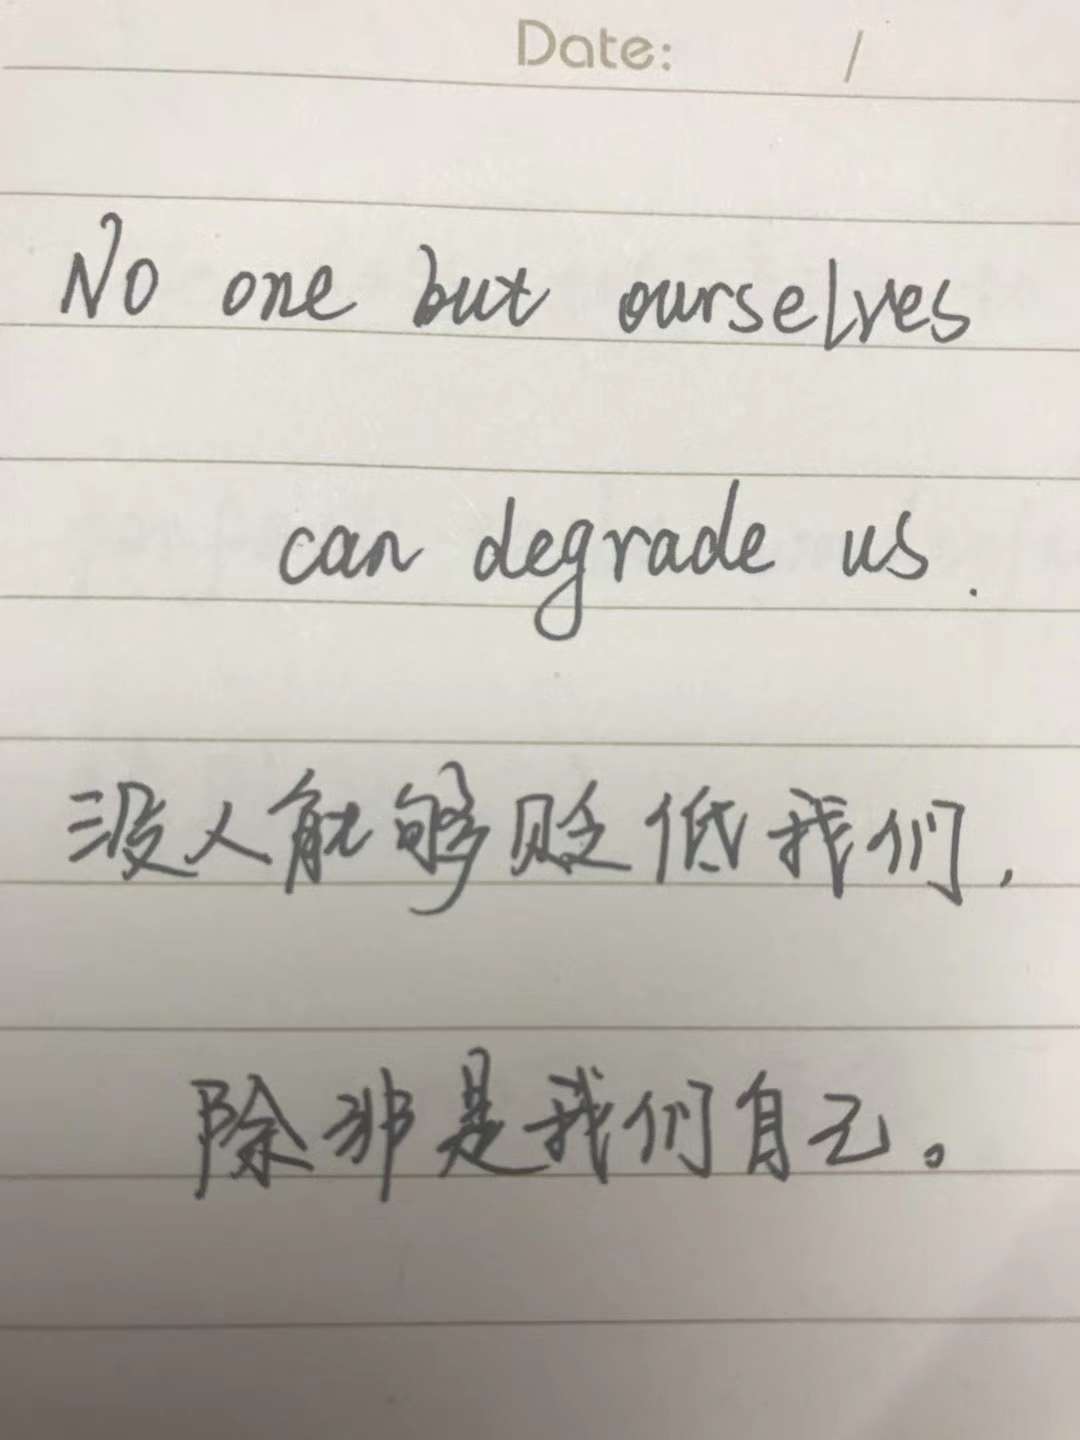 Date: /
No one but ourselves
can degrade us.
没人能够贬低我们,
除非是我们自己。